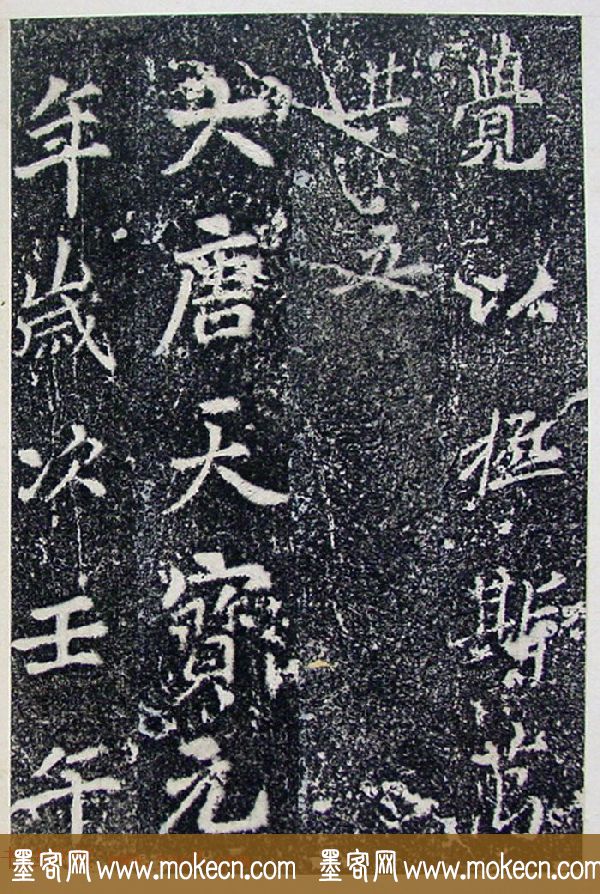 覺以極斯
其五
大唐天寶元
年歲次壬午
墨客网 www.mokecn.com 墨客网 www.mokecn.com